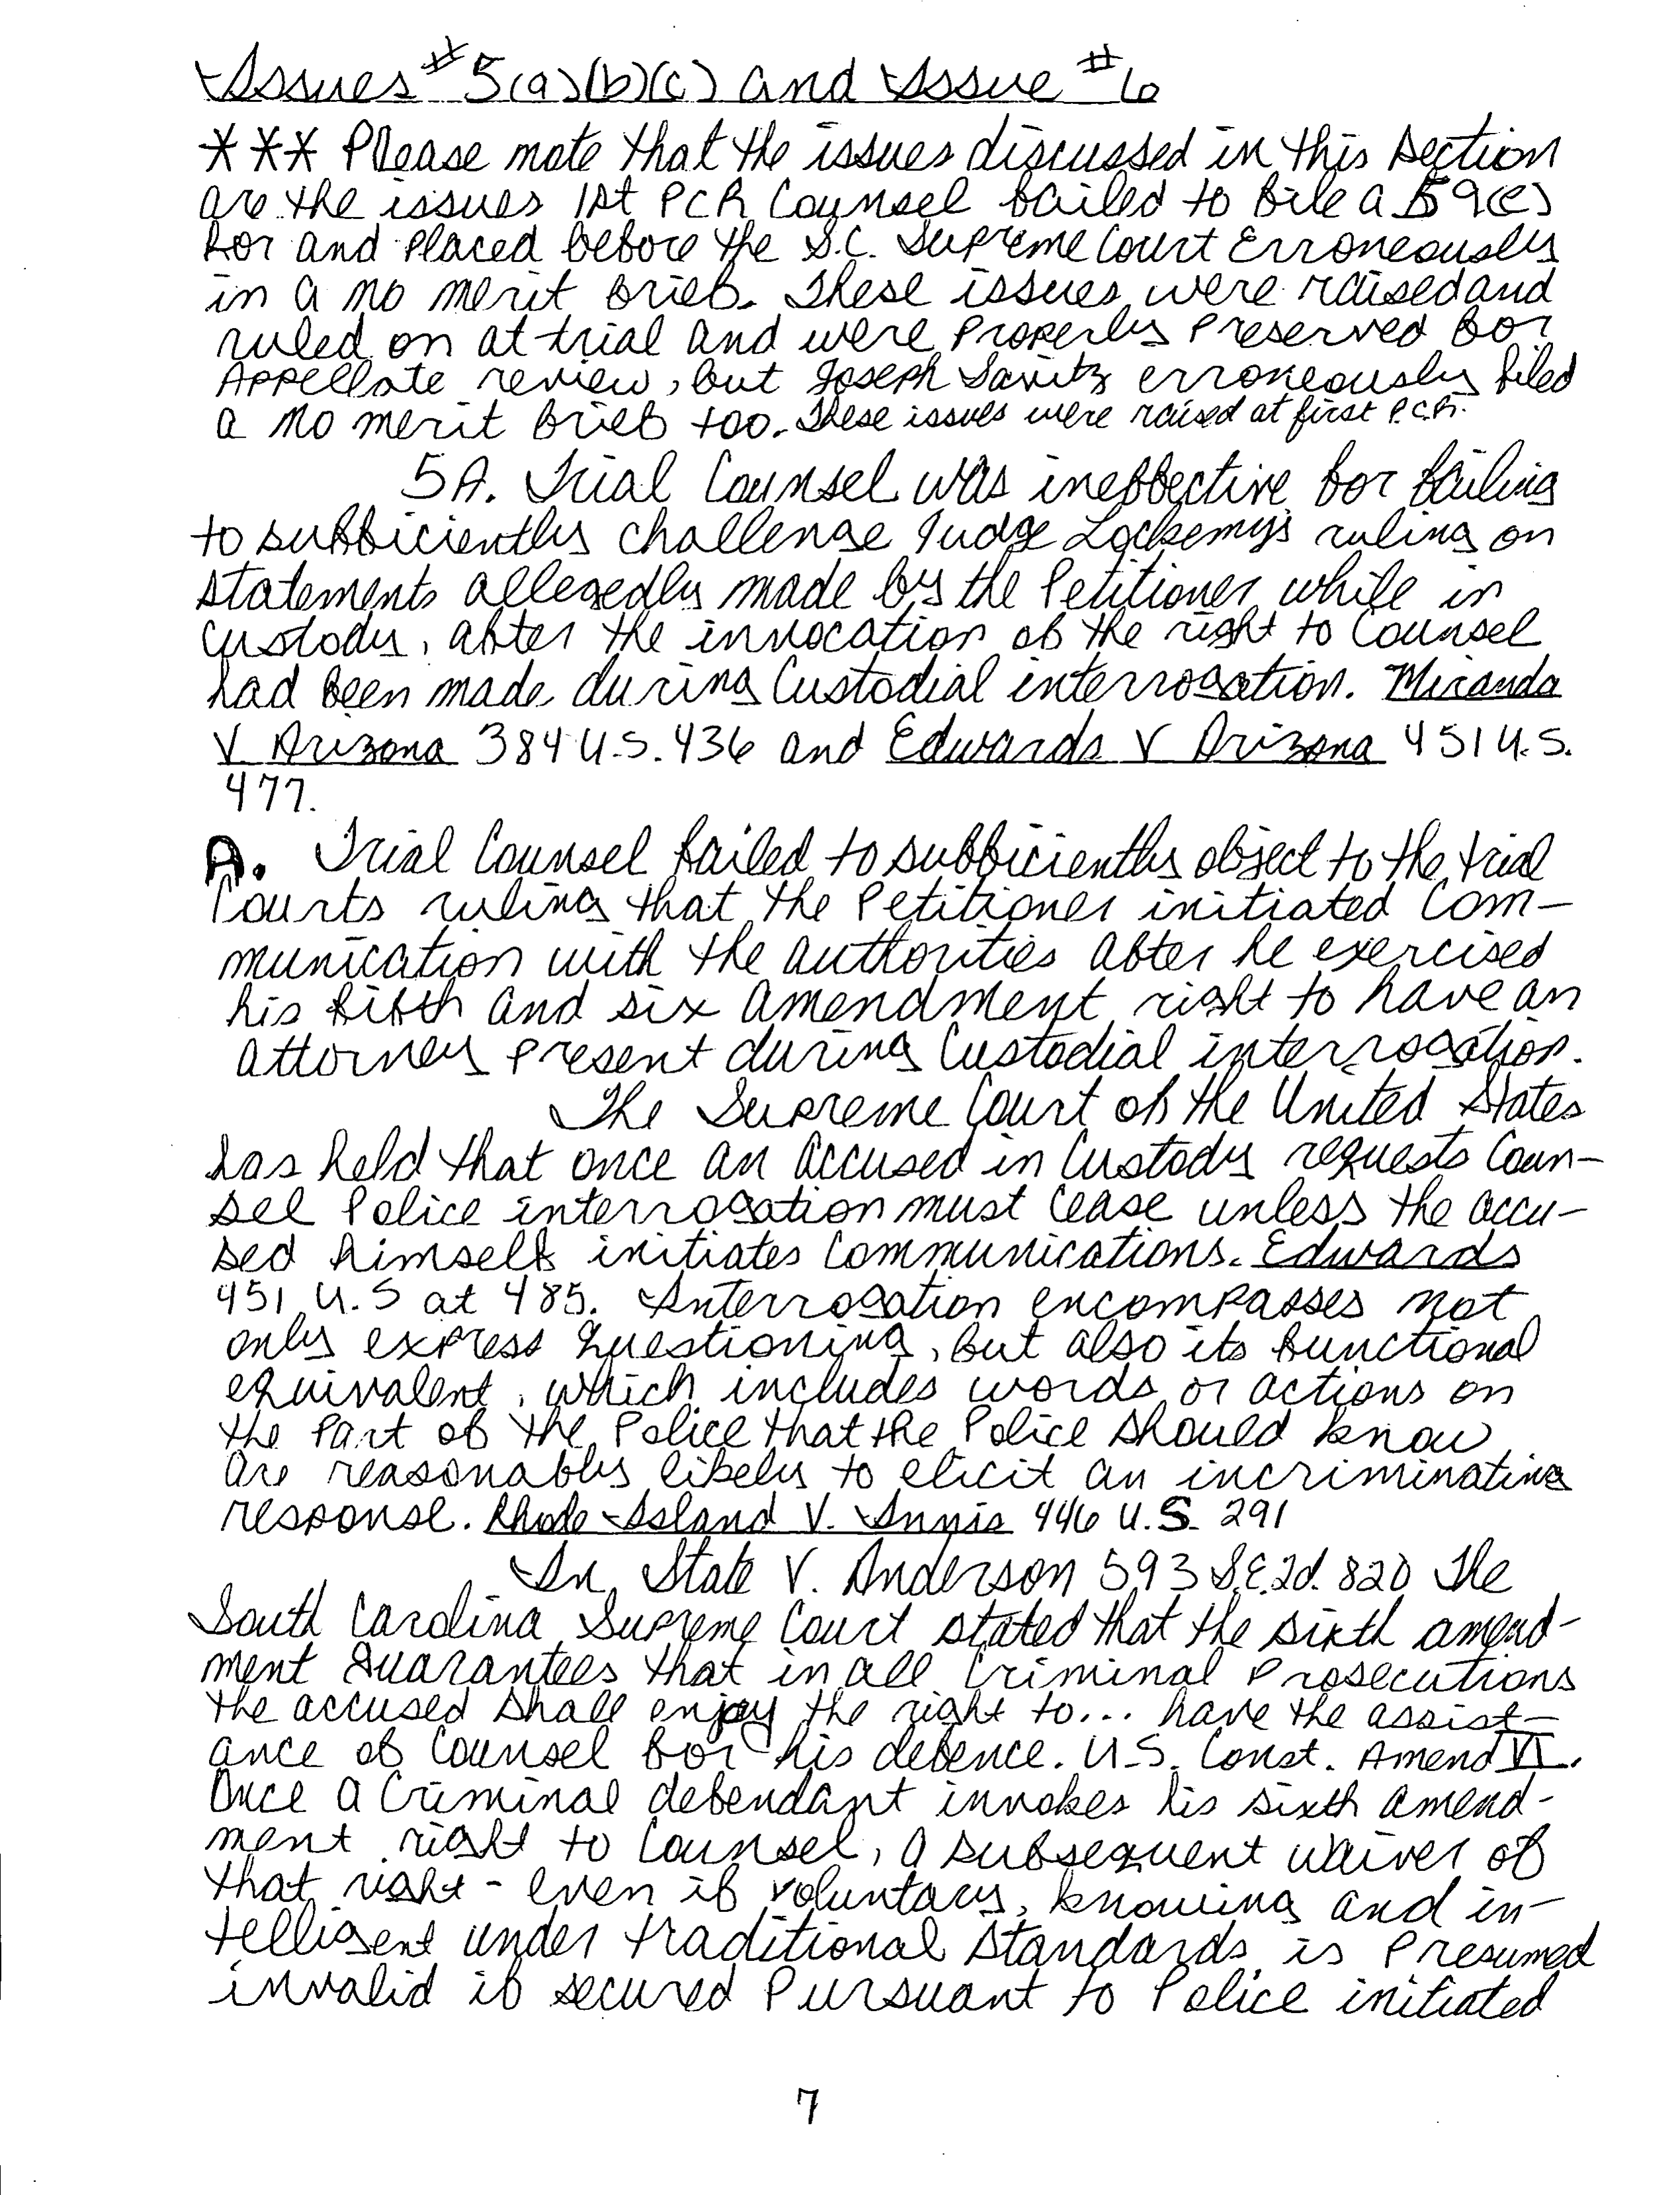 Issues #5(a)(b)(c) and Issue #6
*** Please note that the issues discussed in this section
are the issues 1st PCR Counsel failed to file a 59(e)
for and placed before the S.C. Supreme Court Erroneously
in a no merit brief. These issues were raised and
ruled on at trial and were Properly Preserved for
Appellate review, but Joseph Savitz erroneously filed
a no merit brief too. These issues were raised at first P.C.R.
5A. Trial Counsel was ineffective for failing
to sufficiently challenge Judge Lockemy's ruling on
statements allegedly made by the Petitioner while in
custody, after the invocation of the right to Counsel
had been made during Custodial interrogation. Miranda
V Arizona 384 U.S. 436 and Edwards V Arizona 451 U.S.
477.
A. Trial Counsel failed to sufficiently object to the trial
Courts ruling that the Petitioner initiated Com-
munication with the authorities after he exercised
his fifth and six amendment right to have an
attorney Present during Custodial interrogation.
The Supreme Court of the United States
has held that once an accused in Custody requests Coun-
sel Police interrogation must cease unless the accu-
sed himself initiates Communications. Edwards
451 U.S at 485. Interrogation encompasses not
only express questioning, but also its functional
equivalent, which includes words or actions on
the Part of the Police that the Police should know
are reasonably likely to elicit an incriminating
response. Rhode-Island V. Innis 446 U.S. 291
In State V. Anderson 593 S.E.2d. 820 The
South Carolina Supreme Court stated that the sixth amend-
ment guarantees that in all Criminal Prosecutions
the accused shall enjoy the right to... have the assist-
ance of Counsel for his defence. U.S. Const. Amend VI.
Once a Criminal defendant invokes his sixth amend-
ment right to Counsel, a subsequent waiver of
that right - even if voluntary, knowing and in-
telligent under traditional standards is Presumed
invalid if secured Pursuant to Police initiated
7